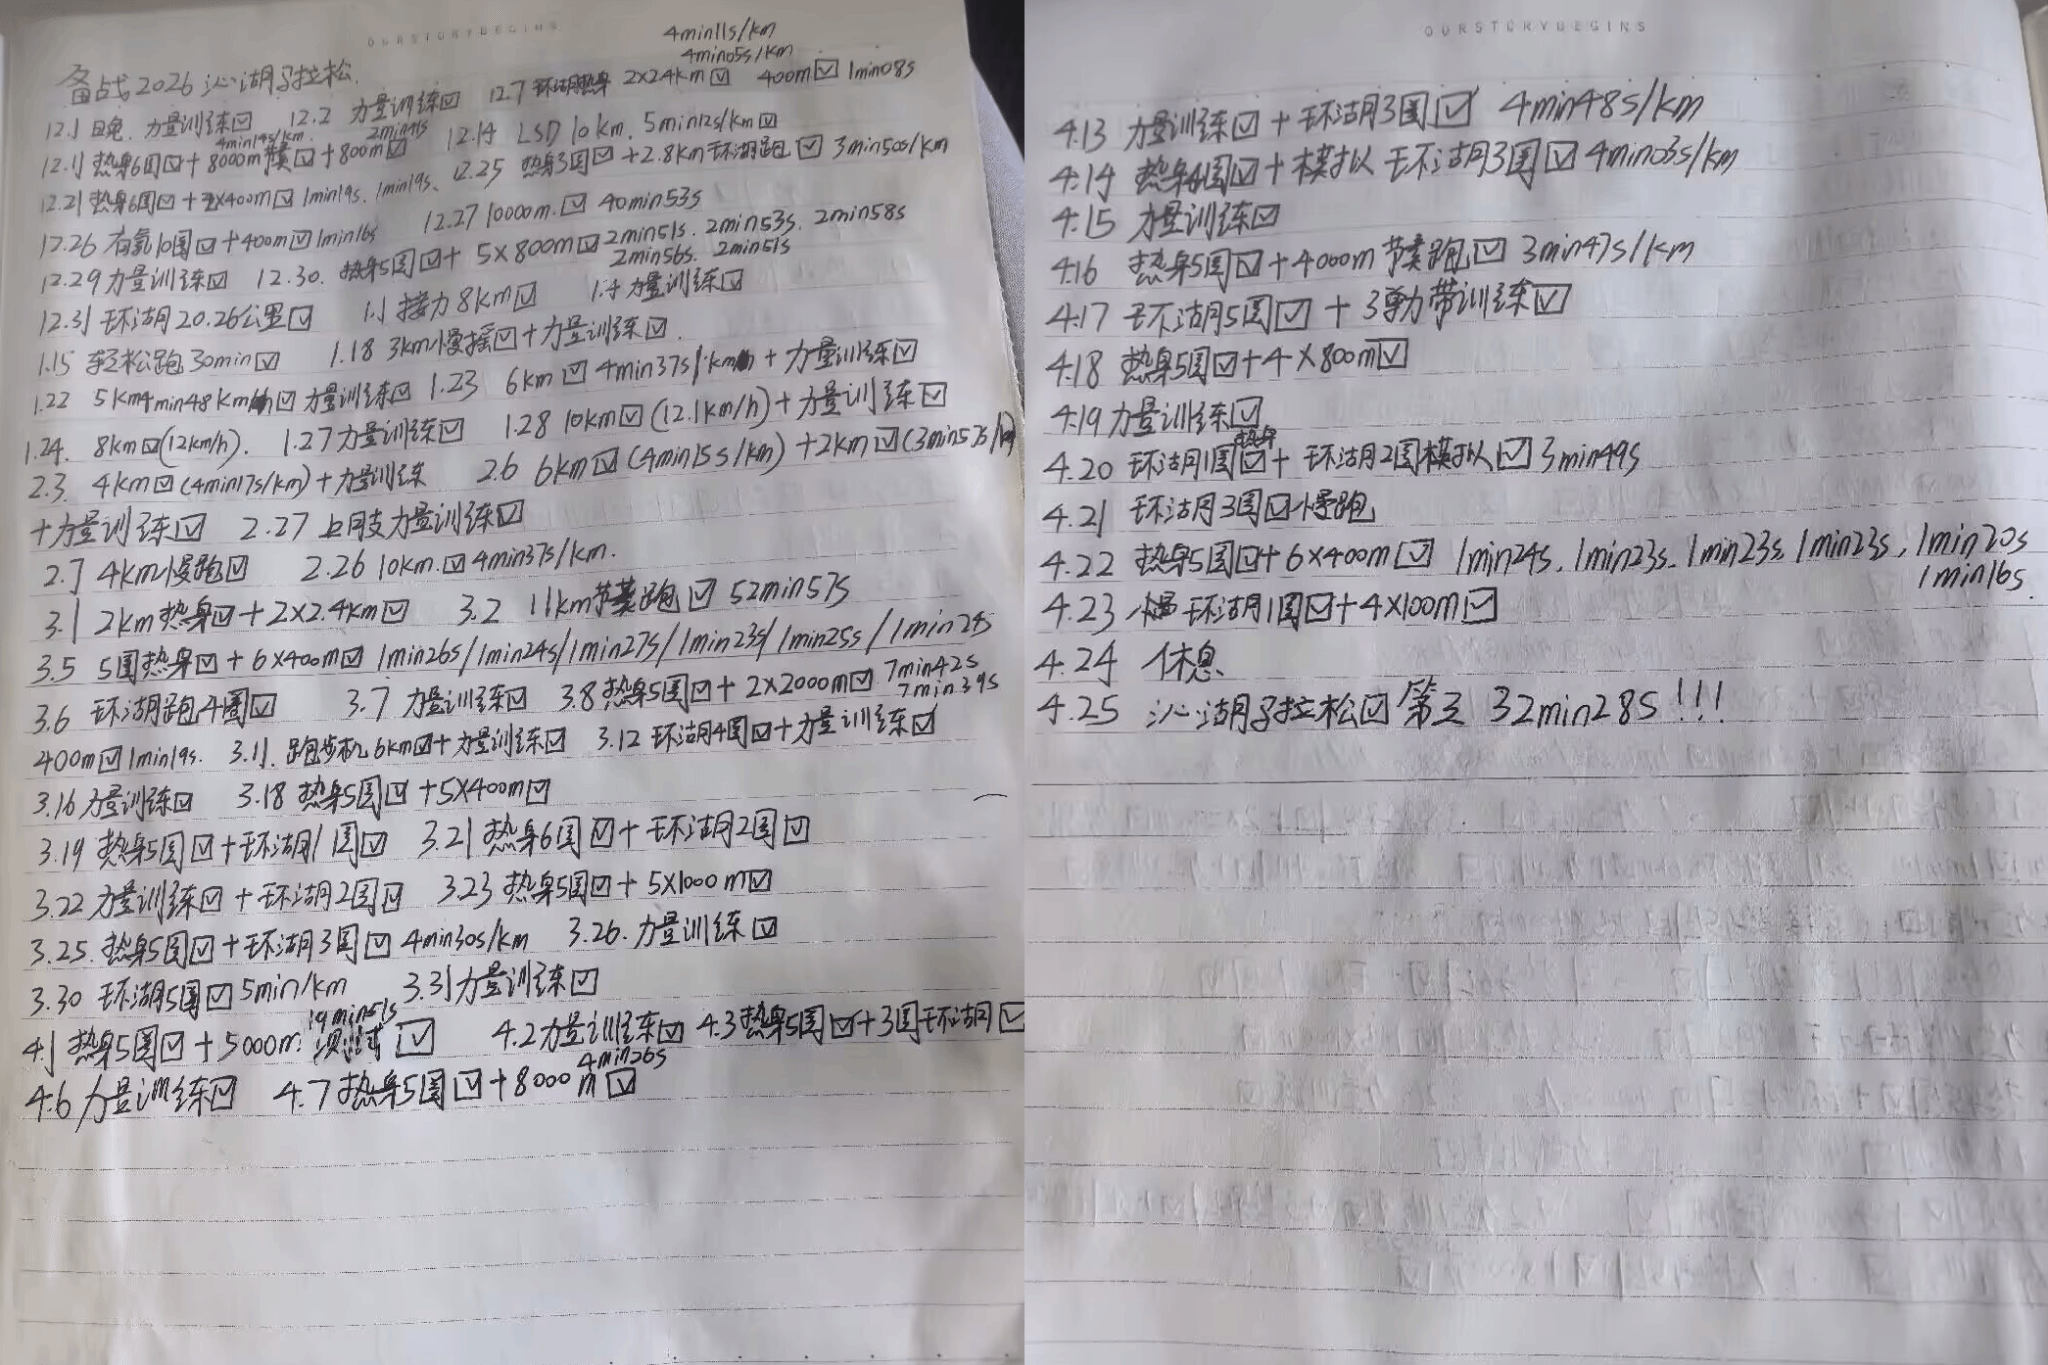 OURSTORYBEGINS
4min11s/km
4min05s/km
备战2026沁湖马拉松.
12.1 日电. 力量训练☑ 12.2 力量训练☑ 12.7 环湖热身 2×2.4km☑ 400m☑ 1min08s
4min14s/km. 2min41s
12.11 热身6圈☑+8000m节奏☑+800m☑ 12.14 LSD 10km. 5min12s/km☑
12.21 热身6圈☑+2×400m☑ 1min19s. 1min19s、 12.25 热身3圈☑+2.8km环湖跑☑ 3min50s/km
12.26 有氧10圈☑+400m☑ 1min16s 12.27 10000m.☑ 40min53s
12.29 力量训练☑ 12.30. 热身5圈☑+5×800m☑ 2min51s. 2min53s. 2min58s
2min56s. 2min51s
12.31 环湖20.26公里☑ 1.1 接力8km☑ 1.4 力量训练☑
1.15 轻松跑30min☑ 1.18 3km慢摇☑+力量训练☑.
1.22 5km4min48km/h☑ 力量训练☑ 1.23 6km☑ 4min37s/km+力量训练☑
1.24. 8km☑(12km/h). 1.27 力量训练☑ 1.28 10km☑(12.1km/h)+力量训练☑
2.3. 4km☑(4min17s/km)+力量训练 2.6 6km☑(4min15s/km)+2km☑(3min57s/km)
+力量训练☑ 2.27 上肢力量训练☑
2.7 4km慢跑☑ 2.26 10km.☑ 4min37s/km.
3.1 2km热身☑+2×2.4km☑ 3.2 11km节奏跑☑ 52min57s
3.5 5圈热身☑+6×400m☑ 1min26s/1min24s/1min27s/1min23s/1min25s/1min24s
3.6 环湖跑4圈☑ 3.7 力量训练☑ 3.8 热身5圈☑+2×2000m☑ 7min42s
7min39s
400m☑ 1min19s. 3.11. 跑步机6km☑+力量训练☑ 3.12 环湖4圈☑+力量训练☑
3.16 力量训练☑ 3.18 热身5圈☑+5×400m☑
3.19 热身5圈☑+环湖1圈☑ 3.21 热身6圈☑+环湖2圈☑
3.22 力量训练☑+环湖2圈☑ 3.23 热身5圈☑+5×1000m☑
3.25. 热身5圈☑+环湖3圈☑ 4min30s/km 3.26. 力量训练☑
3.30 环湖5圈☑ 5min/km 3.31 力量训练☑
19min51s
4.1 热身5圈☑+5000m.测试☑ 4.2 力量训练☑ 4.3 热身5圈☑+3圈环湖☑
4min26s
4.6 力量训练☑ 4.7 热身5圈☑+8000m☑
OURSTORYBEGINS
4.13 力量训练☑+环湖3圈☑ 4min48s/km
4.14 热身4圈☑+模拟环湖3圈☑ 4min03s/km
4.15 力量训练☑
4.16 热身5圈☑+4000m节奏跑☑ 3min47s/km
4.17 环湖5圈☑+弹力带训练☑
4.18 热身5圈☑+4×800m☑
4.19 力量训练☑
热身
4.20 环湖1圈☑+环湖2圈模拟☑ 3min49s
4.21 环湖3圈☑慢跑
4.22 热身5圈☑+6×400m☑ 1min24s. 1min23s. 1min23s. 1min23s. 1min20s
1min16s.
4.23 慢环湖1圈☑+4×100m☑
4.24 休息
4.25 沁湖马拉松☑ 第三 32min28s!!!